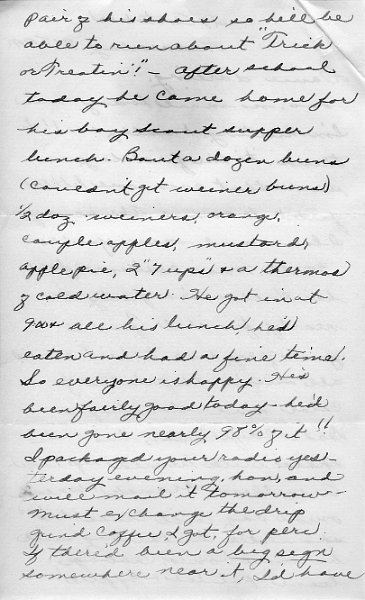 pair of his shoes so he'll be
able to run about "Trick
or Treatin'"! - After school
today he came home for
his boy scout supper
lunch. Bout a dozen buns
(couldn't get weiner buns)
1/2 doz weiners, orange,
couple apples, mustard,
apple pie, 2 "7 ups" & a thermos
of cold water. He got in at
9 & all his lunch he'd
eaten and had a fine time.
So everyone is happy. He's
been fairly good today - he'd
been gone nearly 98% of it!!
I packaged your radio yes-
terday evening, hon, and
will mail it tomorrow -
must exchange the drip
grind coffee I got, for perc.
If there'd been a big sign
somewhere near it, I'd have